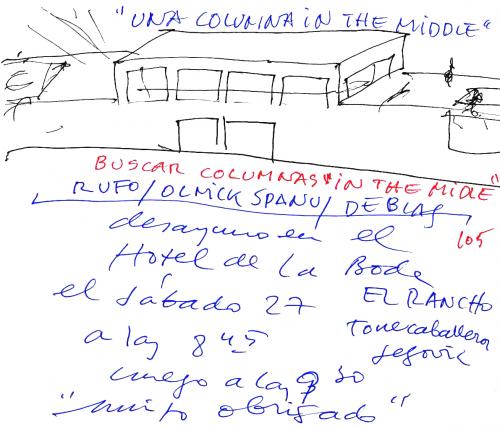 "UNA COLUMNA IN THE MIDDLE"
BUSCAR COLUMNAS "IN THE MIDLE"
RUFO/OLNICK SPANU/ DE BLAS
105
desayuno en el
Hotel de La Boda
el sábado 27
a las 8 45
luego a las 9 30
EL RANCHO
Torrecaballeros
Segovia
"muito obrigado"